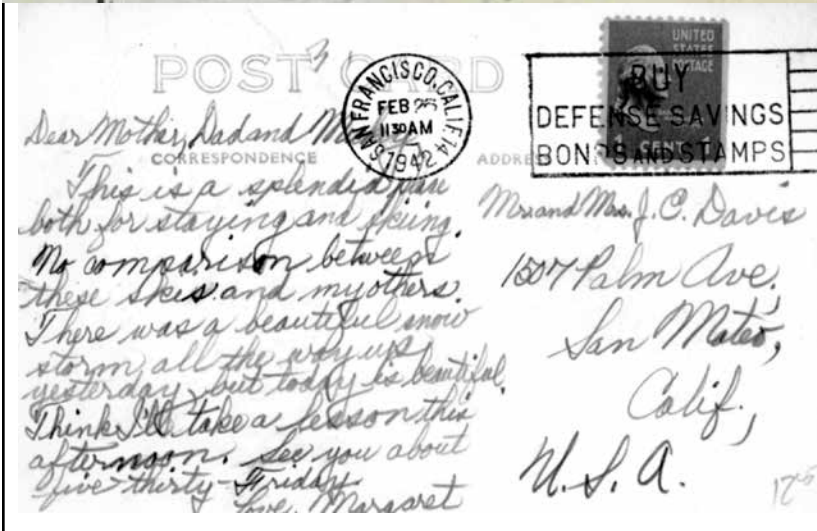 POST CARD
SAN FRANCISCO, CALIF. 14
FEB 25
11 30 AM
1942
UNITED
STATES
POSTAGE
1 CENT 1
BUY
DEFENSE SAVINGS
BONDS AND STAMPS
CORRESPONDENCE
ADDRESS
Dear Mother, Dad and
This is a splendid
both for staying and skiing.
No comparison between
these skis and my others.
There was a beautiful snow
storm all the way up
yesterday, but today is beautiful.
Think I'll take a lesson this
afternoon. See you about
five-thirty Friday.
Love, Margaret
Mr. and Mrs. J. C. Davis
1507 Palm Ave.,
San Mateo,
Calif.,
U. S. A.